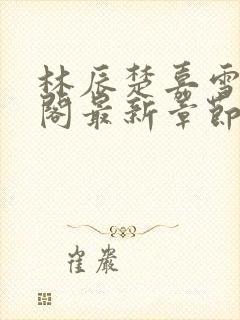 林辰楚嘉雪
阁最新章节
崔岩